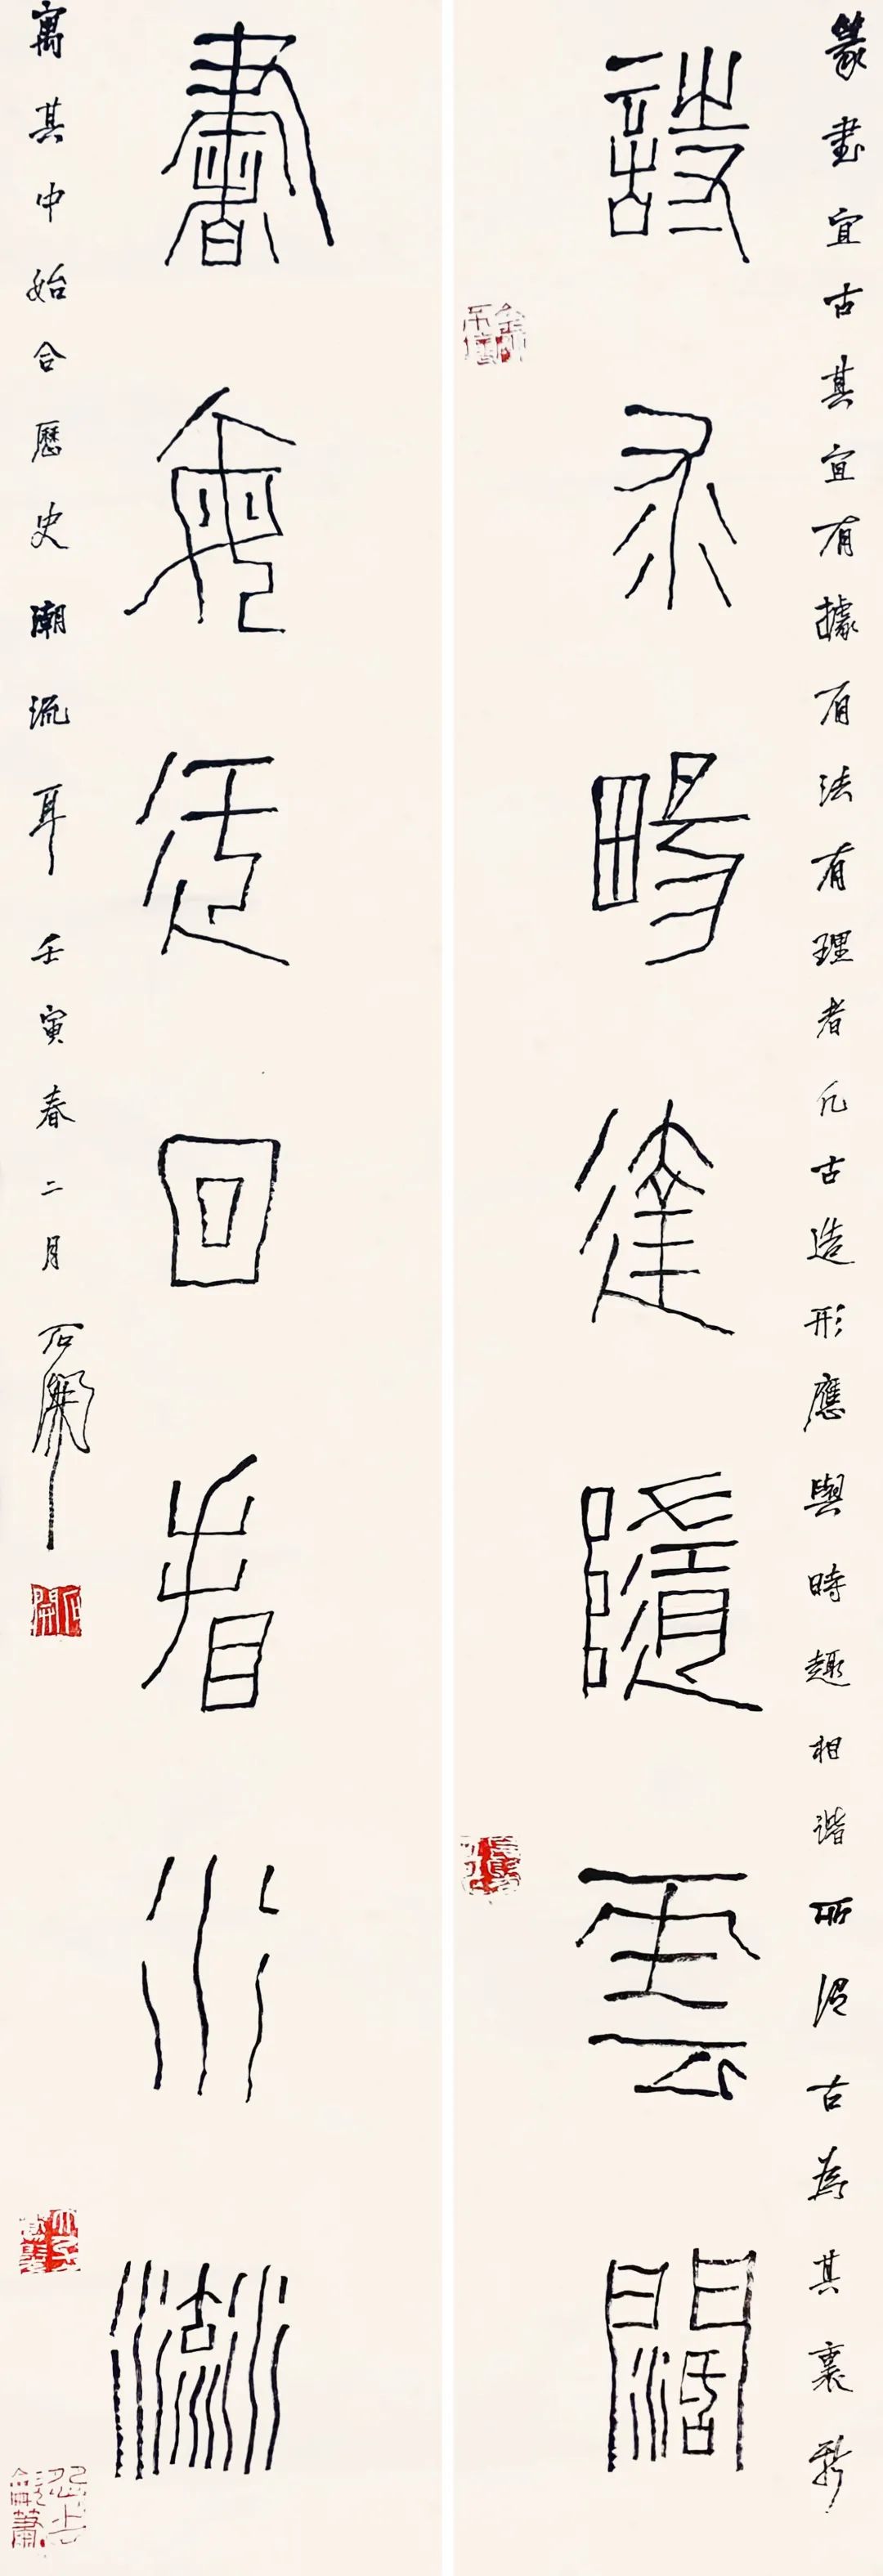 篆書宜古其宜有據有法有理者凡古造形應與時趣相谐所謂古為其裏新
詩求暢達隨雲闊
書迂回看水流
寓其中始合歷史潮流耳壬寅春二月石開
石開